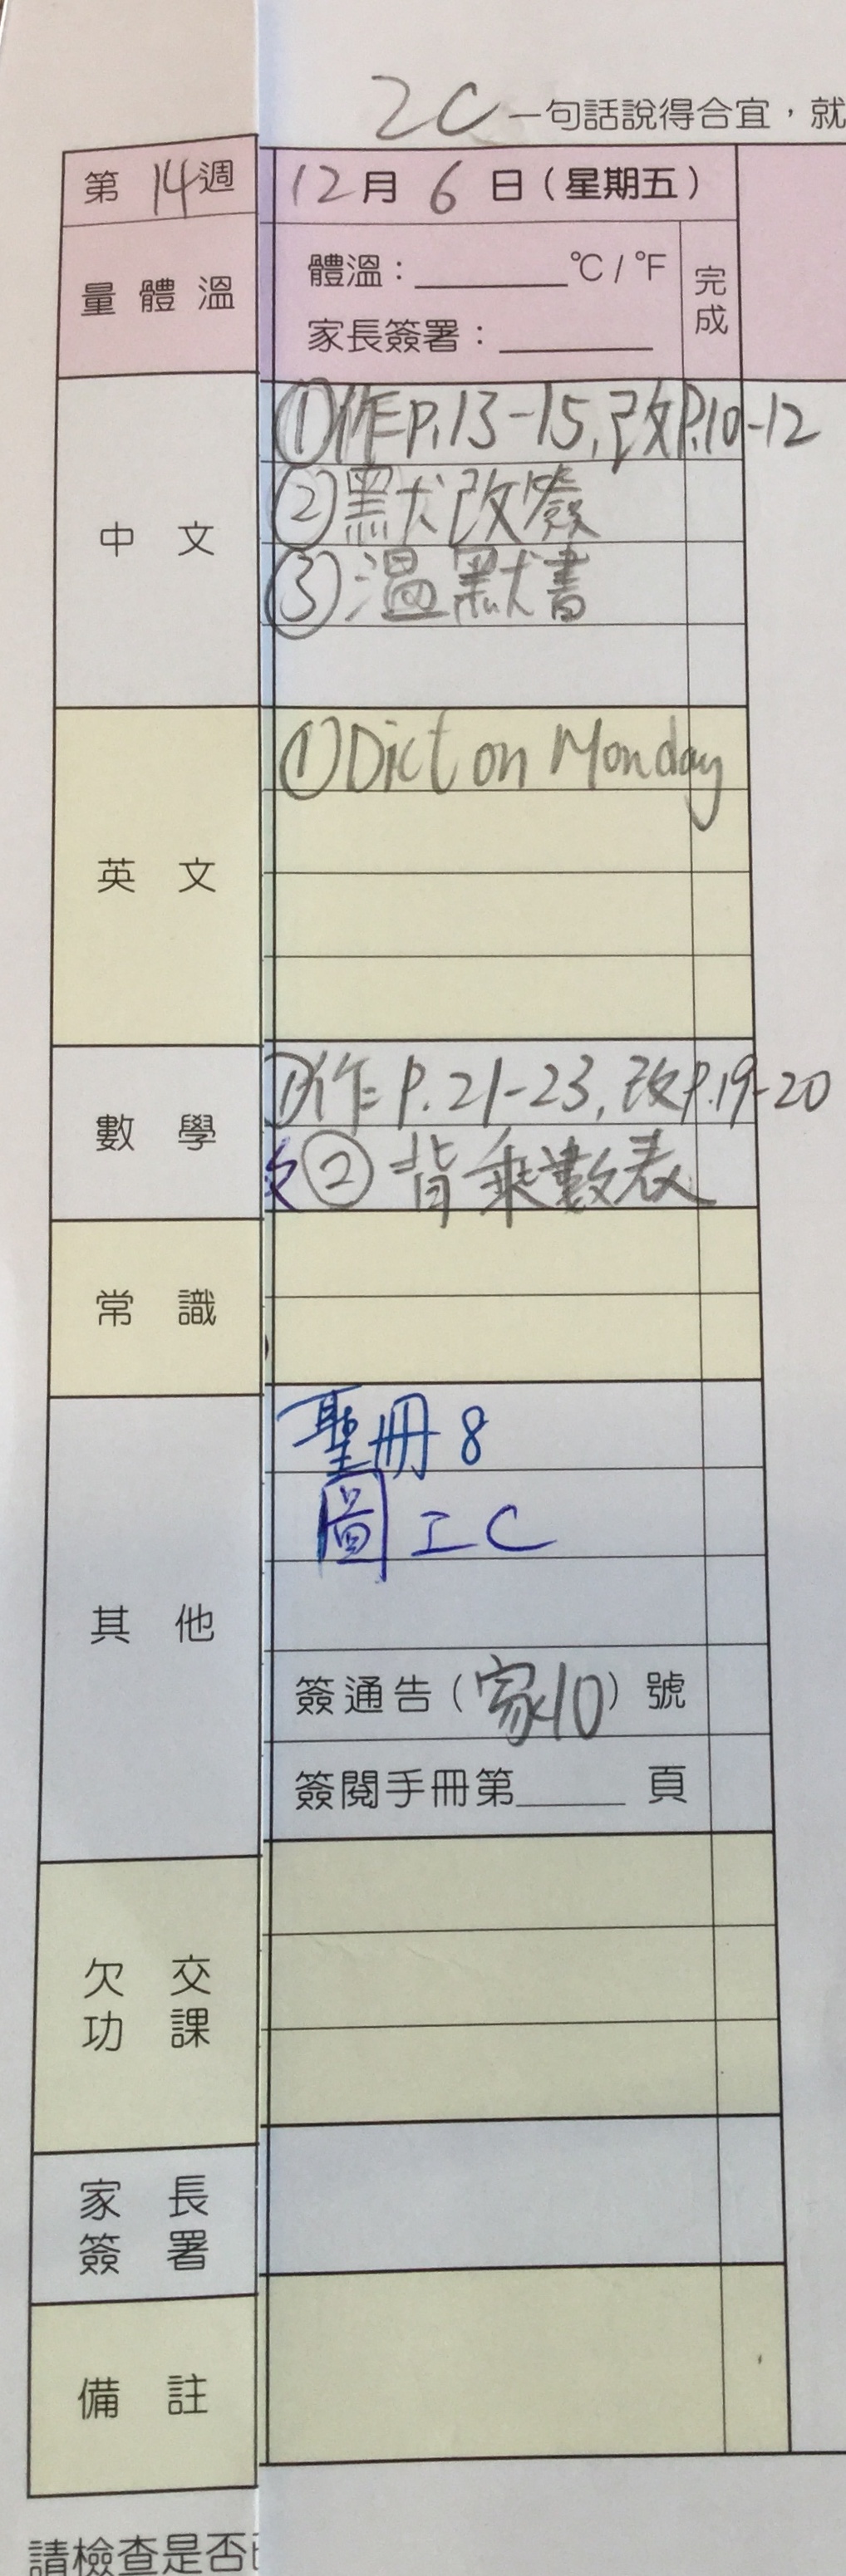 2C 一句話說得合宜，就
第 14 週 12 月 6 日（星期五）
量體溫 體溫：______℃/℉ 完成
家長簽署：______
中文 ①作P.13-15,改P.10-12
②默改簽
③溫默書
英文 ①Dict on Monday
數學 ①作P.21-23,改P.19-20
②背乘數表
常識
其他 聖冊8
圖工C
簽通告（家10）號
簽閱手冊第_____頁
欠交功課
家長簽署
備註
請檢查是否